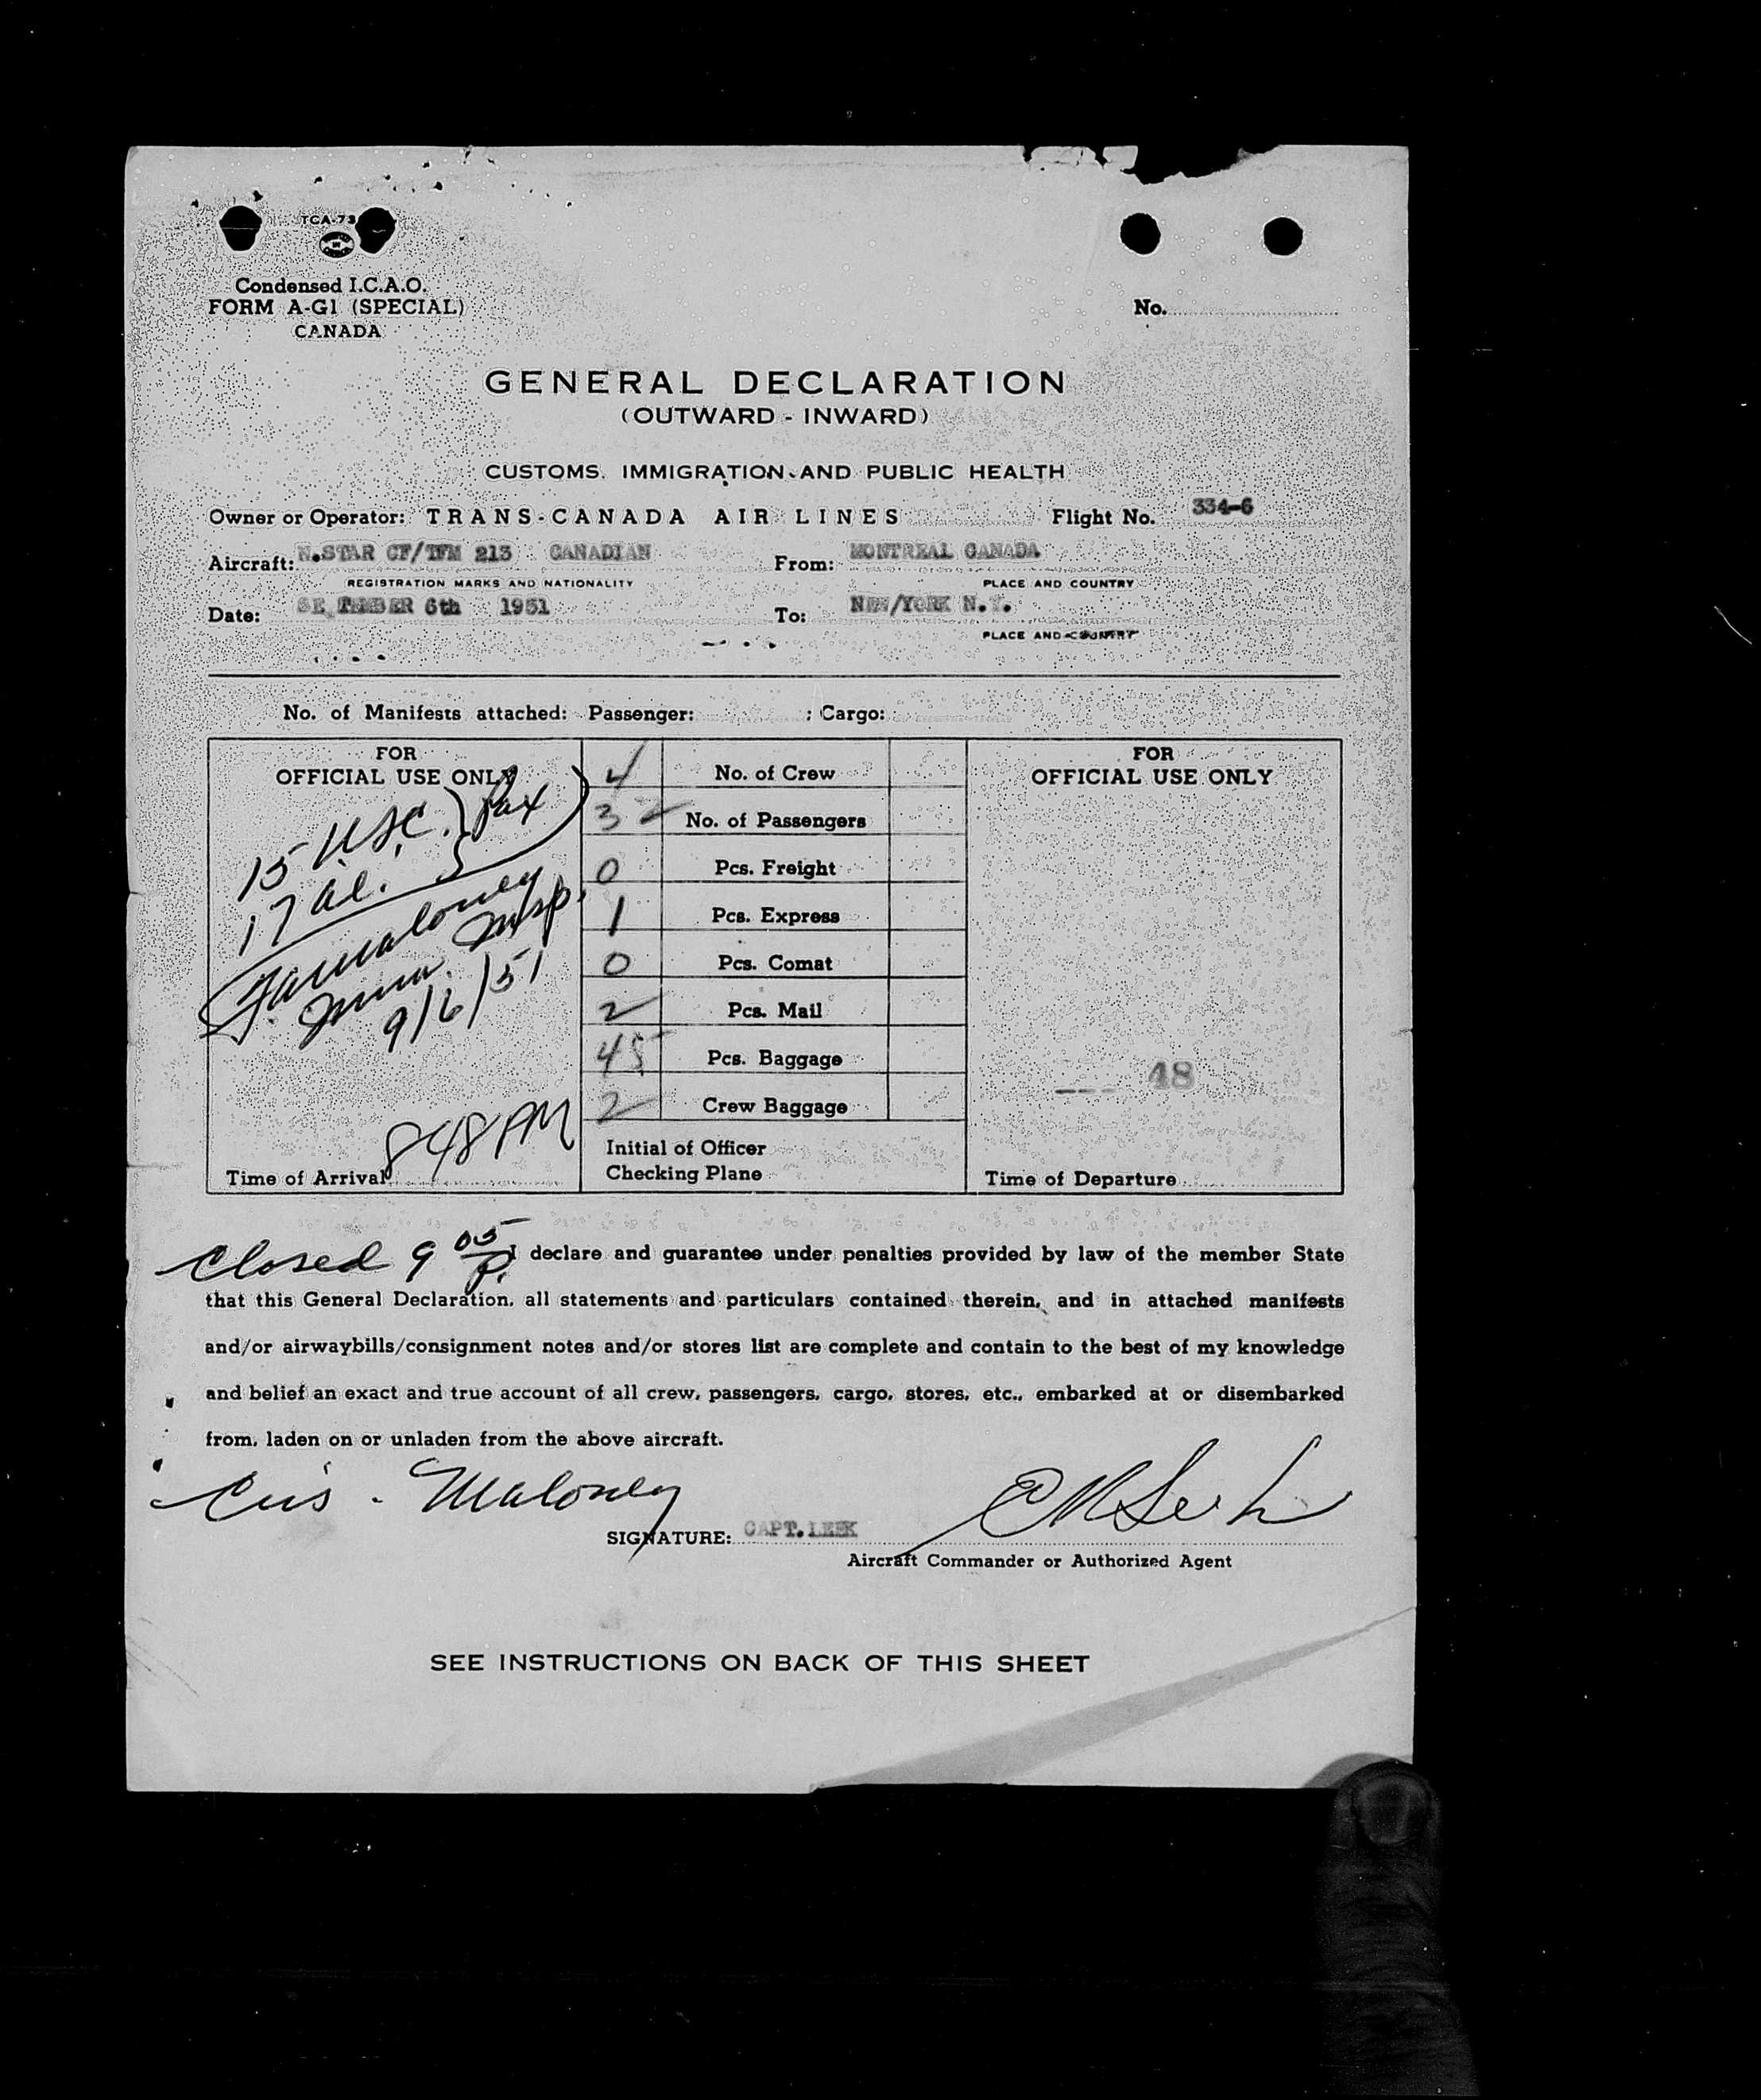 TCA-73
Condensed I.C.A.O.
FORM A-G1 (SPECIAL)
CANADA
No.
GENERAL DECLARATION
(OUTWARD - INWARD)
CUSTOMS, IMMIGRATION AND PUBLIC HEALTH
Owner or Operator: TRANS-CANADA AIR LINES Flight No. 334-6
Aircraft: N.STAR CF/TFM 213 CANADIAN From: MONTREAL CANADA
REGISTRATION MARKS AND NATIONALITY PLACE AND COUNTRY
Date: SE TEMBER 6th 1951 To: NEW/YORK N.Y.
PLACE AND COUNTRY
No. of Manifests attached: Passenger: : Cargo:
FOR
OFFICIAL USE ONLY
15 USC. } Pax
17 al.
Maloney
Imm. Insp.
9/6/51
848 PM
Time of Arrival
4 No. of Crew
32 No. of Passengers
0 Pcs. Freight
1 Pcs. Express
0 Pcs. Comat
2 Pcs. Mail
45 Pcs. Baggage
2 Crew Baggage
Initial of Officer
Checking Plane
FOR
OFFICIAL USE ONLY
48
Time of Departure
Closed 9 05 P. I declare and guarantee under penalties provided by law of the member State
that this General Declaration, all statements and particulars contained therein, and in attached manifests
and/or airwaybills/consignment notes and/or stores list are complete and contain to the best of my knowledge
and belief an exact and true account of all crew, passengers, cargo, stores, etc., embarked at or disembarked
from, laden on or unladen from the above aircraft.
Cus - Maloney
SIGNATURE: CAPT. LEEK
Aircraft Commander or Authorized Agent
SEE INSTRUCTIONS ON BACK OF THIS SHEET